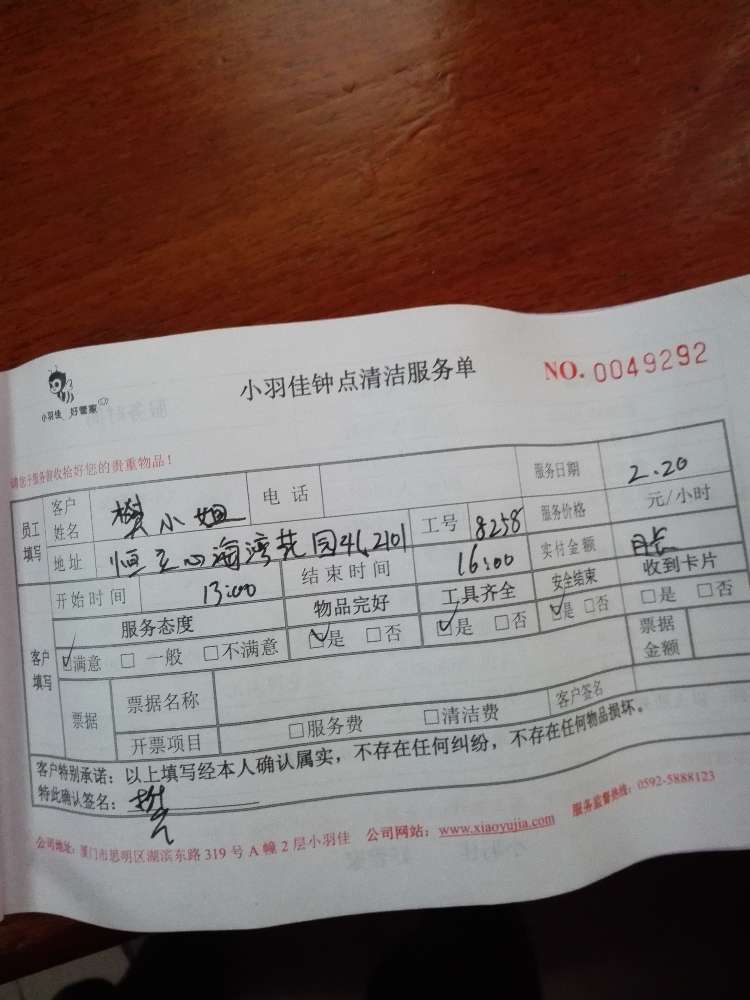 小羽佳 好管家
小羽佳钟点清洁服务单
NO. 0049292
请您于服务前收拾好您的贵重物品！
员工填写 客户姓名 樊小姐 电话 服务日期 2.20
地址 恒 心海湾花园 2101 工号 8258 服务价格 元/小时
开始时间 13:00 结束时间 16:00 实付金额
客户填写 服务态度 物品完好 工具齐全 安全结束 收到卡片
☑满意 □一般 □不满意 ☑是 □否 ☑是 □否 ☑是 □否 □是 □否
票据 票据名称 票据金额
开票项目 □服务费 □清洁费 客户签名
客户特别承诺：以上填写经本人确认属实，不存在任何纠纷，不存在任何物品损坏。
特此确认签名：
公司地址：厦门市思明区湖滨东路319号A幢2层小羽佳 公司网站：www.xiaoyujia.com 服务监督热线：0592-5888123